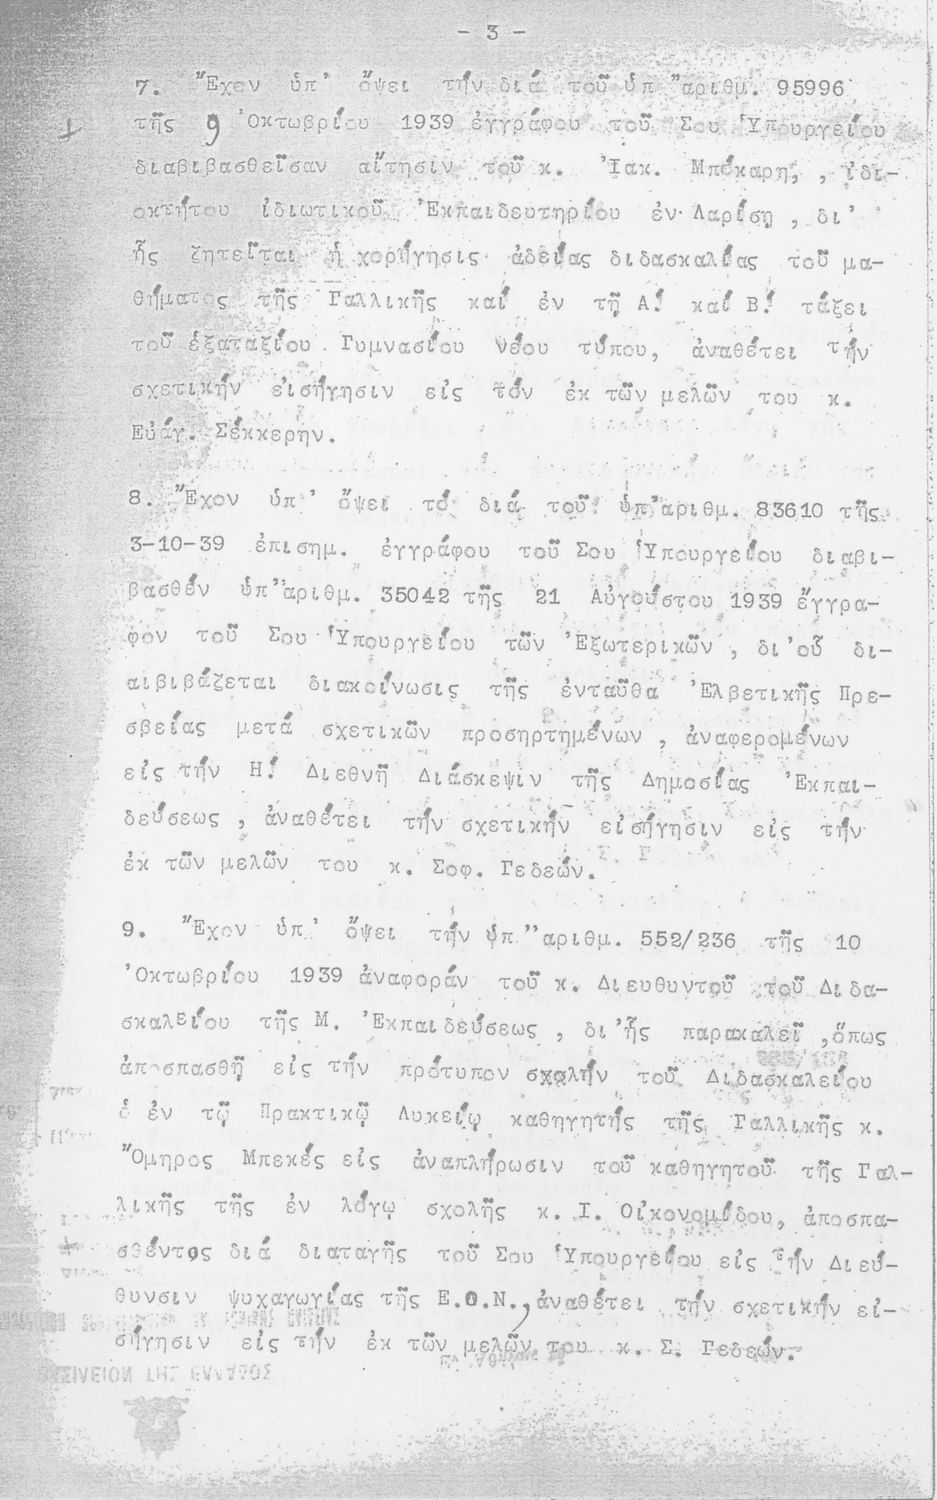 - 3 -
7. Ἔχον ὑπ' ὄψει τήν διά τοῦ ὑπ "αριθμ. 95996
τῆς 9 Ὀκτωβρίου 1939 ἐγγράφου τοῦ Σου Ὑπουργείου
διαβιβασθεῖσαν αἴτησιν τοῦ κ. Ἰακ. Μπέκαρη, , ἰδι-
οκτήτου ἰδιωτικοῦ Ἐκπαιδευτηρίου ἐν Λαρίσῃ , δι'
ἧς ζητεῖται ἡ χορήγησις ἀδείας διδασκαλίας τοῦ μα-
θήματος τῆς Γαλλικῆς καί ἐν τῇ Α! καί Β! τάξει
τοῦ ἑξαταξίου Γυμνασίου νέου τύπου, ἀναθέτει τήν
σχετικήν εἰσήγησιν εἰς τόν ἐκ τῶν μελῶν του κ.
Εὐάγ. Σέκκερην.
8. Ἔχον ὑπ' ὄψει τό διά τοῦ ὑπ'ἀριθμ. 83610 τῆς
3-10-39 ἐπισημ. ἐγγράφου τοῦ Σου Ὑπουργείου διαβι-
βασθέν ὑπ"ἀριθμ. 35042 τῆς 21 Αὐγούστου 1939 ἔγγρα-
φον τοῦ Σου Ὑπουργείου τῶν Ἐξωτερικῶν , δι'οὗ δι-
αιβιβάζεται διακοίνωσις τῆς ἐνταῦθα Ἐλβετικῆς Πρε-
σβείας μετά σχετικῶν προσηρτημένων , ἀναφερομένων
εἰς τήν Η! Διεθνῆ Διάσκεψιν τῆς Δημοσίας Ἐκπαι-
δεύσεως , ἀναθέτει τήν σχετικήν εἰσήγησιν εἰς τήν
ἐκ τῶν μελῶν του κ. Σοφ. Γεδεών.
9. Ἔχον ὑπ' ὄψει τήν ὑπ "αριθμ. 552/236 τῆς 10
Ὀκτωβρίου 1939 ἀναφοράν τοῦ κ. Διευθυντοῦ τοῦ Διδα-
σκαλείου τῆς Μ. Ἐκπαιδεύσεως , δι'ἧς παρακαλεῖ ,ὅπως
ἀποσπασθῇ εἰς τήν πρότυπον σχολήν τοῦ Διδασκαλείου
ὁ ἐν τῷ Πρακτικῷ Λυκείῳ καθηγητής τῆς Γαλλικῆς κ.
Ὅμηρος Μπεκές εἰς ἀναπλήρωσιν τοῦ καθηγητοῦ τῆς Γαλ-
λικῆς τῆς ἐν λόγῳ σχολῆς κ. Ι. Οἰκονομίδου, ἀποσπα-
σθέντος διά διαταγῆς τοῦ Σου Ὑπουργείου εἰς τήν Διεύ-
θυνσιν ψυχαγωγίας τῆς Ε.Ο.Ν., ἀναθέτει τήν σχετικήν εἰ-
σήγησιν εἰς τήν ἐκ τῶν μελῶν του κ. Σ. Γεδεών.